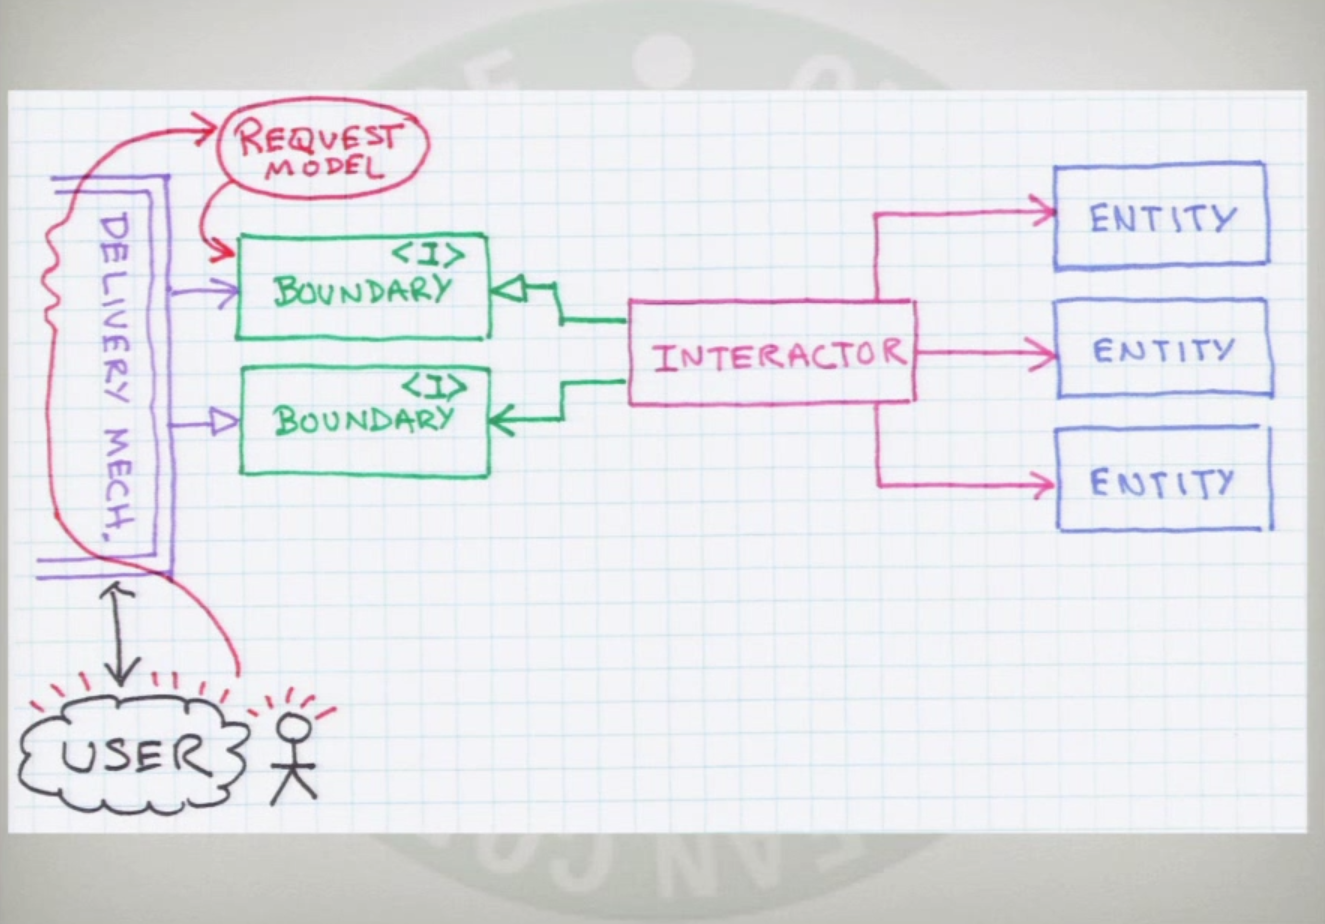 REQUEST
MODEL
DELIVERY MECH.
<I>
BOUNDARY
<I>
BOUNDARY
INTERACTOR
ENTITY
ENTITY
ENTITY
USER